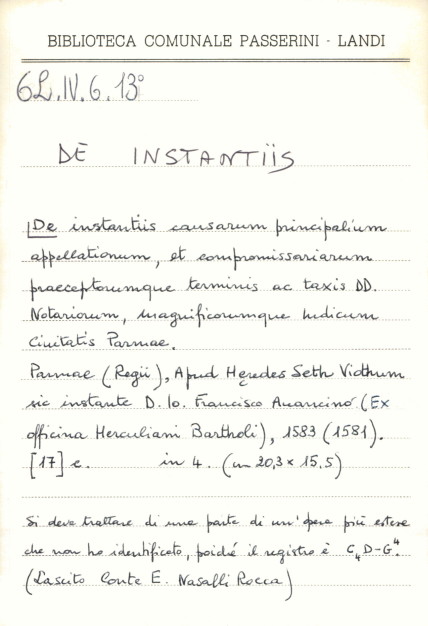 BIBLIOTECA COMUNALE PASSERINI - LANDI
6L.IV.6.13°
DE INSTANTIIS
De instantiis causarum principalium
appellationum, et compromissariarum
praeceptorumque terminis ac taxis DD.
Notariorum, magnificorumque Iudicum
Civitatis Parmae.
Parmae (Regii), Apud Heredes Seth Viothum
sic instante D. Io. Francisco Avancino (Ex
officina Herculiani Bartholi), 1583 (1581).
[17] c. in 4. (cm 20,3 x 15,5)
Si deve trattare di una parte di un'opera più estesa
che non ho identificato, poiché il registro è C4 D-G4.
(Lascito Conte E. Nasalli Rocca)